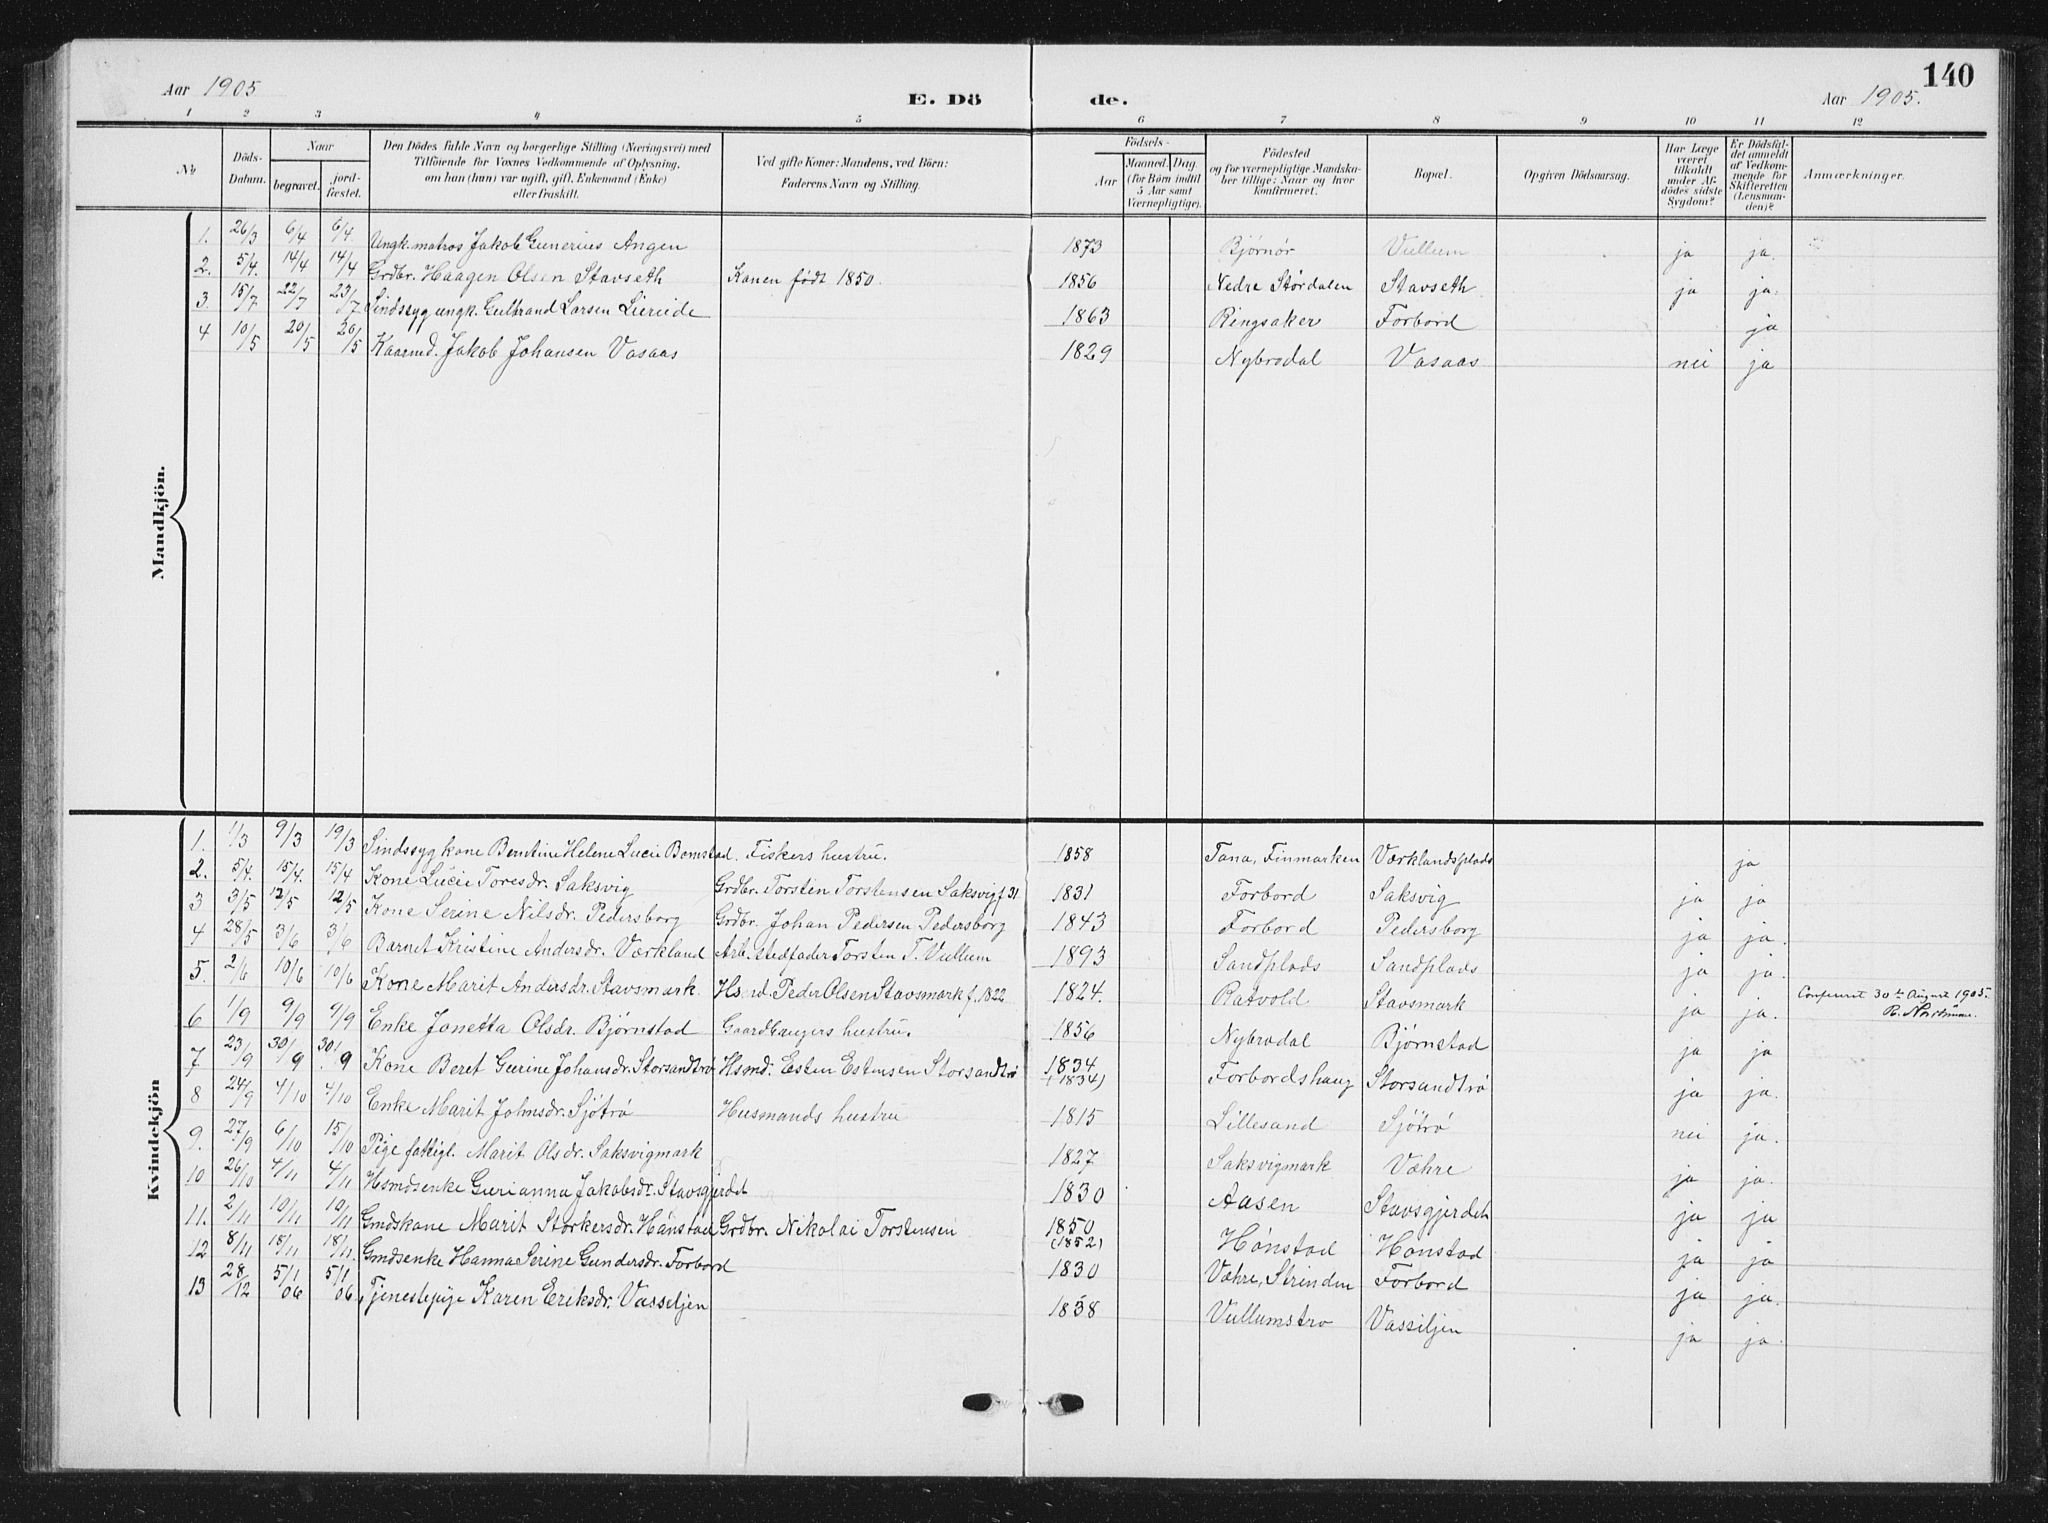 Aar 1905
E. Dö
de.
Aar 1905.
140
1 2 3 4 5 6 7 8 9 10 11 12
No
Döds-Datum.
Naar
begravet.
jord-fæstet.
Den Dödes fulde Navn og borgerlige Stilling (Næringsvei) med
Tilföiende for Voxnes Vedkommende af Oplysning,
om han (hun) var ugift, gift, Enkemand (Enke)
eller fraskilt.
Ved gifte Koner: Mandens, ved Börn:
Faderens Navn og Stilling.
Födsels-
Aar
Maaned. Dag.
(for Börn indtil
5 Aar samt
Værnepligtige).
Födested
og for værnepligtige Mandska-
ber tillige: Naar og hvor
Konfirmeret.
Bopæl.
Opgiven Dödsaarsag.
Har Læge
været
tilkaldt
under Af-
dödes sidste
Sygdom?
Er Dödsfal-
det anmeldt
af Vedkom-
mende for
Skifteretten
(Lensman-
den)?
Anmærkninger.
Mandkjön.
1. 26/3 6/4 6/4 Ungk. matros Jakob Gunerius Angen 1873 Bjørnør Vullum ja ja.
2. 5/4. 14/4 14/4 Grdbr. Haagen Olsen Stavseth Konen født 1850. 1856 Nedre Størdalen Stavseth ja ja.
3 15/7 22/7 23/7 Sindssyg ungk. Gulbrand Larsen Lierude 1863 Ringsaker Forbord ja
4 10/5 20/5 20/5 Kaarmd. Jakob Johansen Vasaas 1829 Nybrodal Vasaas nei ja
Kvindekjön
1. 1/3 9/3 19/3 Sindssyg kone Berntine Helene Lucie Bomstad. Fiskers hustru. 1858 Tana, Finmarken Værklandsplads ja
2. 5/4. 15/4. 15/4 Kone Lucie Toresdr. Saksvig Grdbr. Torsten Torstensen Saksvig f 31 1831 Forbord Saksvig ja ja
3 3/5 12/5 12/5 Kone Serine Nilsdr. Pedersborg Grdbr. Johan Pedersen Pedersborg 1843 Forbord Pedersborg ja ja.
4 28/5 3/6 3/6 Barnet Kristine Andersdr. Værkland Arb. stedfader Torsten T. Vullum 1893 Sandplads Sandplads ja ja.
5. 2/6 10/6 10/6 Kone Marit Andersdr. Stavsmark. Hsmd. Peder Olsen Stavsmark f. 1822 1824. Ratvold Stavsmark ja ja.
Confereret 30te August 1905.
6 1/9 9/9 9/9 Enke Jonetta Olsdr. Bjørnstad Gaardbrugers hustru. 1856 Nybrodal Bjørnstad ja ja
7 23/9 30/9 30/9 Kone Beret Gurine Johansdr. Storsandtrø Hsmd. Esten Estensen Storsandtrø 1834 (1834) Forbordshaug Storsandtrø ja ja.
8 24/9 4/10 4/10 Enke Marit Johnsdr. Sjøtrø Husmands hustru 1815 Lillesand Sjøtrø nei ja.
9. 27/9 6/10 15/10 Pige fattigl. Marit Olsdr. Saksvigmark 1827 Saksvigmark Væhre ja ja.
10 26/10 4/11 4/11 Hsmdsenke Gurianna Jakobsdr. Stavsgjerdet 1830 Aasen Stavsgjerdet ja ja
11. 2/11 10/11 10/11 Gmdskone Marit Storkersdr. Hønstad Grdbr. Nikolai Torstensen 1850 (1852) Hønstad Hønstad ja ja
12 8/11 18/11 18/11. Gmdsenke Hanna Serine Gundersdr. Forbord 1830 Væhre, Strinden Forbord ja ja.
13 28/12 5/1 06 5/1 06 Tjenestepige Karen Eriksdr. Vassiljen 1858 Vullumstrø Vassiljen ja ja.